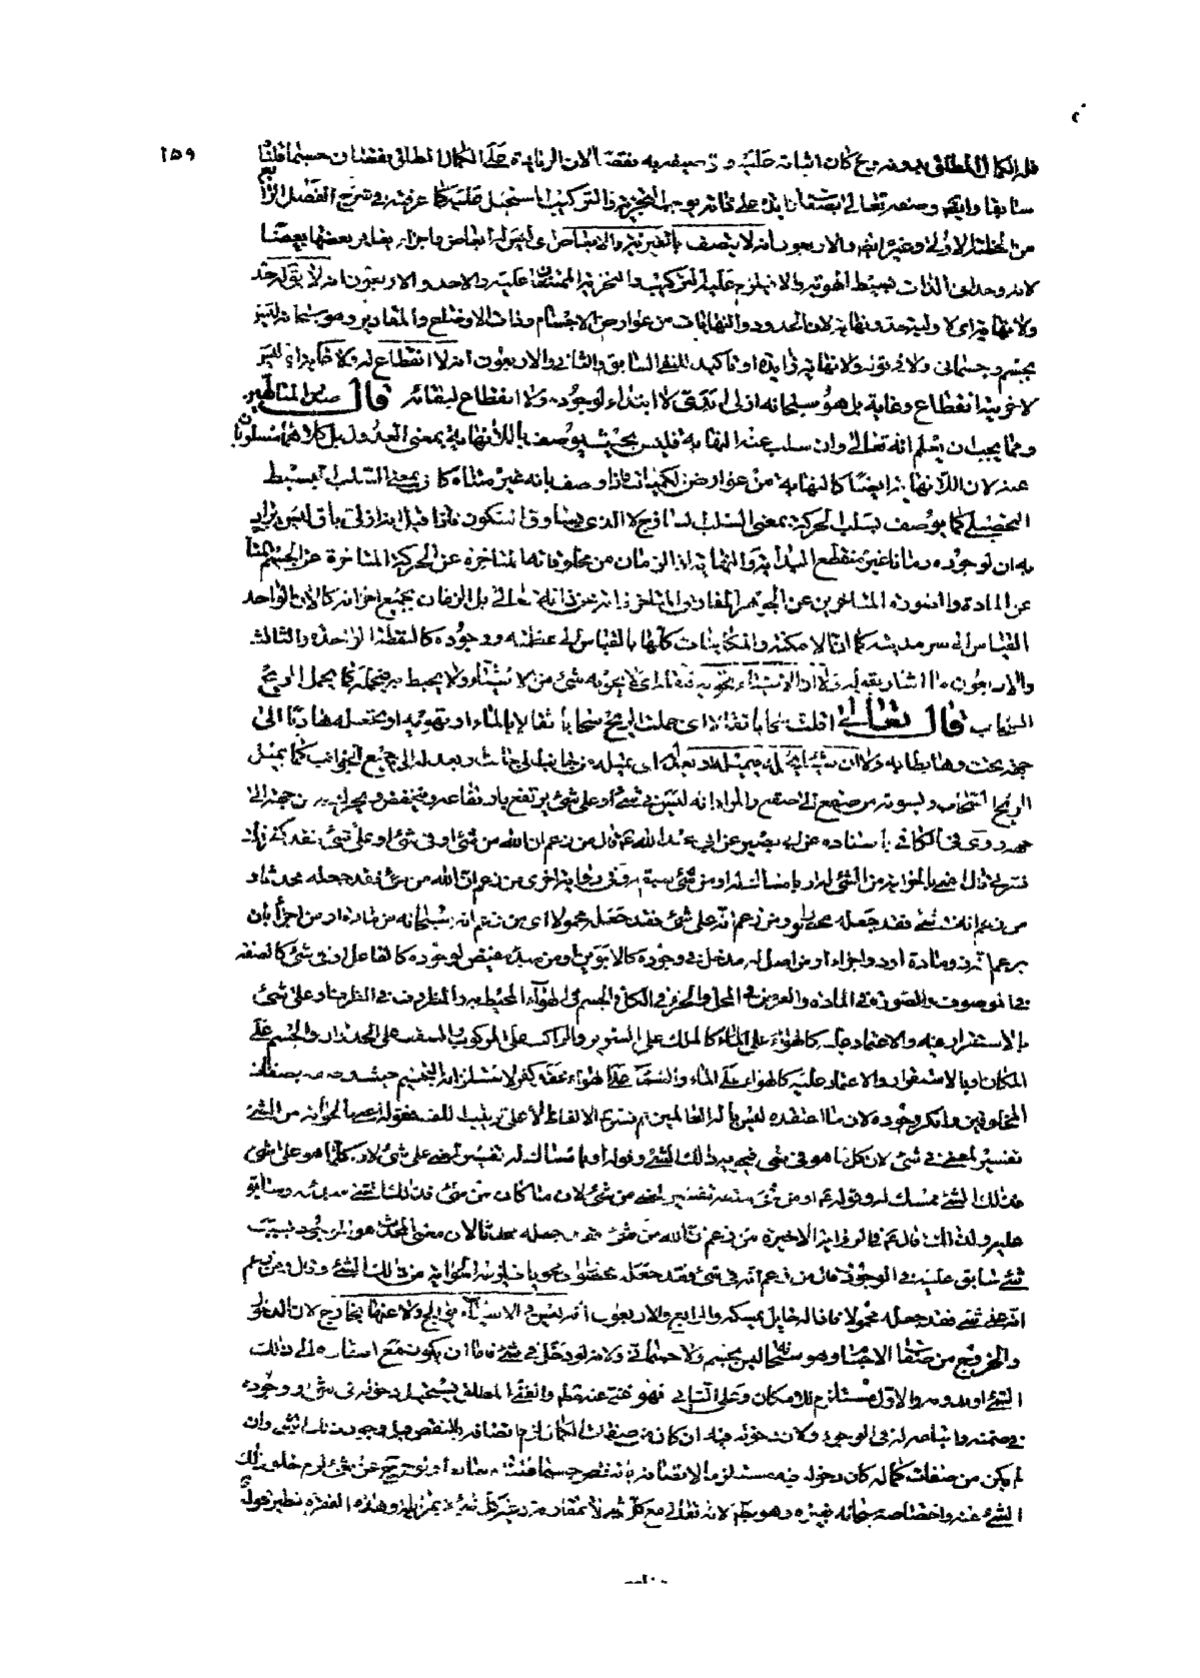 ١٥٩
فله الكمال المطلق بدونه وح كان اثباته عليه وتوصيفه به نقصا لان الزيادة على الكمال المطلق نقصان حسبما قلنا
سابقا وايضا وصفه تعالى بصفات زايدة على ذاته يوجب التجزية والتركيب المستحيل عليه كما عرفته في شرح الفصل الرابع
من الخطبة الاولى وغيرها والاربعون انه لا يتصف بالغيرية والابعاض اى ليس له ابعاض واجزاء يغاير بعضها بعضا
لانه وحداني الذات بسيط الهوية والا يلزم عليه التركيب والتجزية الممتنعان عليه والاحد والاربعون انه لا يقال له حد
ولا نهاية اى لا وليته حد ونهاية لان الحدود والنهايات من عوارض الاجسام وذات الاوضاع والمقادير وهو سبحانه ليس
بجسم وجسماني ولا في قوله ولا نهاية زايدة او تأكيد للنفى السابق والثاني والاربعون انه لا انقطاع له ولا غاية اى ليس
لاخريته انقطاع وغاية بل هو سبحانه ازلى ابدى لا ابتداء لوجوده ولا انقطاع لبقائه قال صدر المتألهين
ومما يجب ان يعلم انه تعالى وان سلب عنه النهاية فليس بحيث يوصف باللانهاية بمعنى العدول بل كلاهما مسلوبان
عنه لان اللانهاية ايضا كالنهاية من عوارض الكميات فاذا وصف بانه غير متناه كان بمعنى السلب البسيط
التحصيلى كما يوصف بسلب الحركة بمعنى السلب الساذج لا الذى يساوق السكون فاذا قيل انه ازلى باق ليس يراد
به ان لوجوده زمانا غير منقطع البداية والنهاية اذ الزمان من مخلوقاته المتأخرة عن الحركة المتأخرة عن الجسم المتأخر
عن المادة والصورة المتأخرين عن الجوهر المفارق المتأخر ذاته عن ذاته تعالى بل الزمان بجميع اجزائه كالان الواحد
بالقياس الى سرمديته كما ان الامكنة والمكانيات كلها بالقياس الى عظمته ووجوده كالنقطة الواحدة والثالث
والاربعون ما اشار بقوله ولا ان الاشياء تحويه فتقله اى لا يحويه شئ من الاشياء ولا يحيط به فيحمله كما يحمل الريح
السحاب قال تعالى اقلت سحابا ثقالا اى حملت الريح سحابا ثقالا بالماء او تهويه او يجعله هاويا الى
جهة تحت وهابطا به ولا ان شيئا يحمله فيميله او يعدله اى يميله من جانب الى جانب او يعدله الى جميع الجوانب كما يميل
الريح السحاب ويسوقه من صقع الى صقع والمراد انه ليس في شئ او على شئ يرتفع بارتفاعه وينخفض وبحركته من جهة الى
جهة روى في الكافى باسناده عن ابى بصير عن ابى عبد الله ع قال من زعم ان الله من شئ او في شئ او على شئ فقد كفر قلت
فسر لى قال اعنى بالحواية من الشئ له او بامساك له او من شئ سبقه وفى رواية اخرى من زعم ان الله من شئ فقد جعله محدثا و
من زعم انه في شئ فقد جعله محصورا ومن زعم انه على شئ فقد جعله محمولا اى من زعم انه سبحانه من مادة او من اجزاء بان
يزعم انه ذو مادة او ذو اجزاء او من اصل له مدخل في وجوده كالابوين او من مبدء مفيض لوجوده كالفاعل او في شئ كالصفة
في الموصوف والصورة في المادة والعرض في المحل والجزء في الكل او الجسم في الهواء المحيط به والمظروف في الظرف او على شئ
بالاستقرار فيه والاعتماد عليه كالهواء على الماء كالملك على السرير والراكب على المركوب والسقف على الجدران والجسم على
المكان او بالاستقرار والاعتماد عليه كالهواء على الماء والسماء على الهواء فقد كفر لاستلزامه التجسيم حيث وصفه بصفات
المخلوقين وانكر وجوده لان ما اعتقده ليس باله العالمين ثم فسر ع الالفاظ لا على ترتيب اللف فقوله اعنى بالحواية من الشئ
تفسير لمعنى في شئ لان كل ما هو في شئ فيحويه ذلك الشئ وقوله او بامساك له تفسير لمعنى على شئ لان كل ما هو على شئ
فذلك الشئ ممسك له وقوله ع او من شئ سبقه تفسير لمعنى من شئ لان ما كان من شئ فذلك الشئ مبدئه وسابق
عليه ولذلك قال ع في الرواية الاخيرة من زعم ان الله من شئ فقد جعله محدثا لان معنى المحدث هو الموجود بسبب
شئ سابق عليه في الوجود قال من زعم انه في شئ فقد جعله محصورا اى محويا فيلزمه الحواية من ذلك الشئ وقال ومن زعم
انه على شئ فقد جعله محمولا فاذا له حامل يمسكه والرابع والاربعون انه ليس في الاشياء بوالج ولا عنها بخارج لان الدخول
والخروج من صفات الاجسام وهو سبحانه ليس بجسم ولا جسماني ولانه لو دخل في شئ فاما ان يكون مع افتقاره الى ذلك
الشئ او بدونه والاول مستلزم للامكان وعلى الثاني فهو غنى عنه مطلقا والغنى المطلق يستحيل دخوله في شئ ووجوده
في ضمنه واتباعه له في الوجود ولان دخوله فيه ان كان من صفات الكمال لزم اتصافه بالنقص قبل وجود ذلك الشئ وان
لم يكن من صفات كماله كان دخوله فيه مستلزما لاتصافه بالنقص حسبما قلنا سابقا ولانه لو خرج عن شئ لزم خلو ذلك
الشئ عنه واختصاصه سبحانه بغيره وهو بط لانه تعالى مع كل شئ لا بمقارنة وغير كل شئ لا بمزايلة وهذه الفقرة نظير قوله